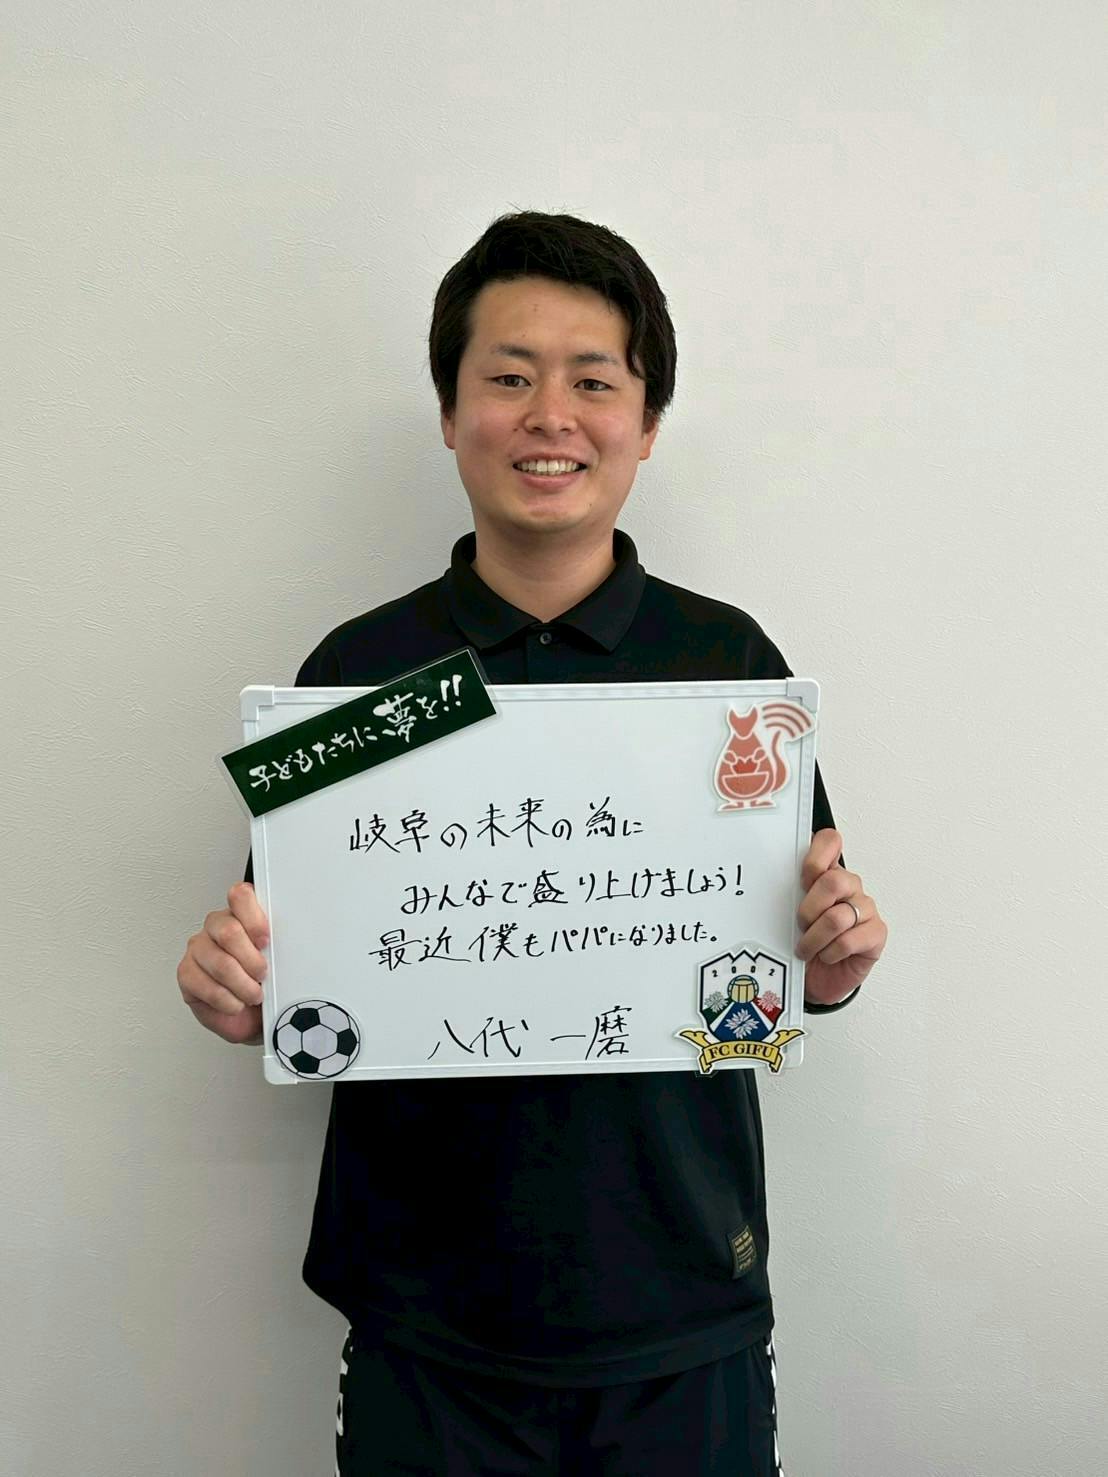 子どもたちに、夢を!!
岐阜の未来の為に
みんなで盛り上げましょう!
最近僕もパパになりました。
八代 一磨
2002
FC GIFU